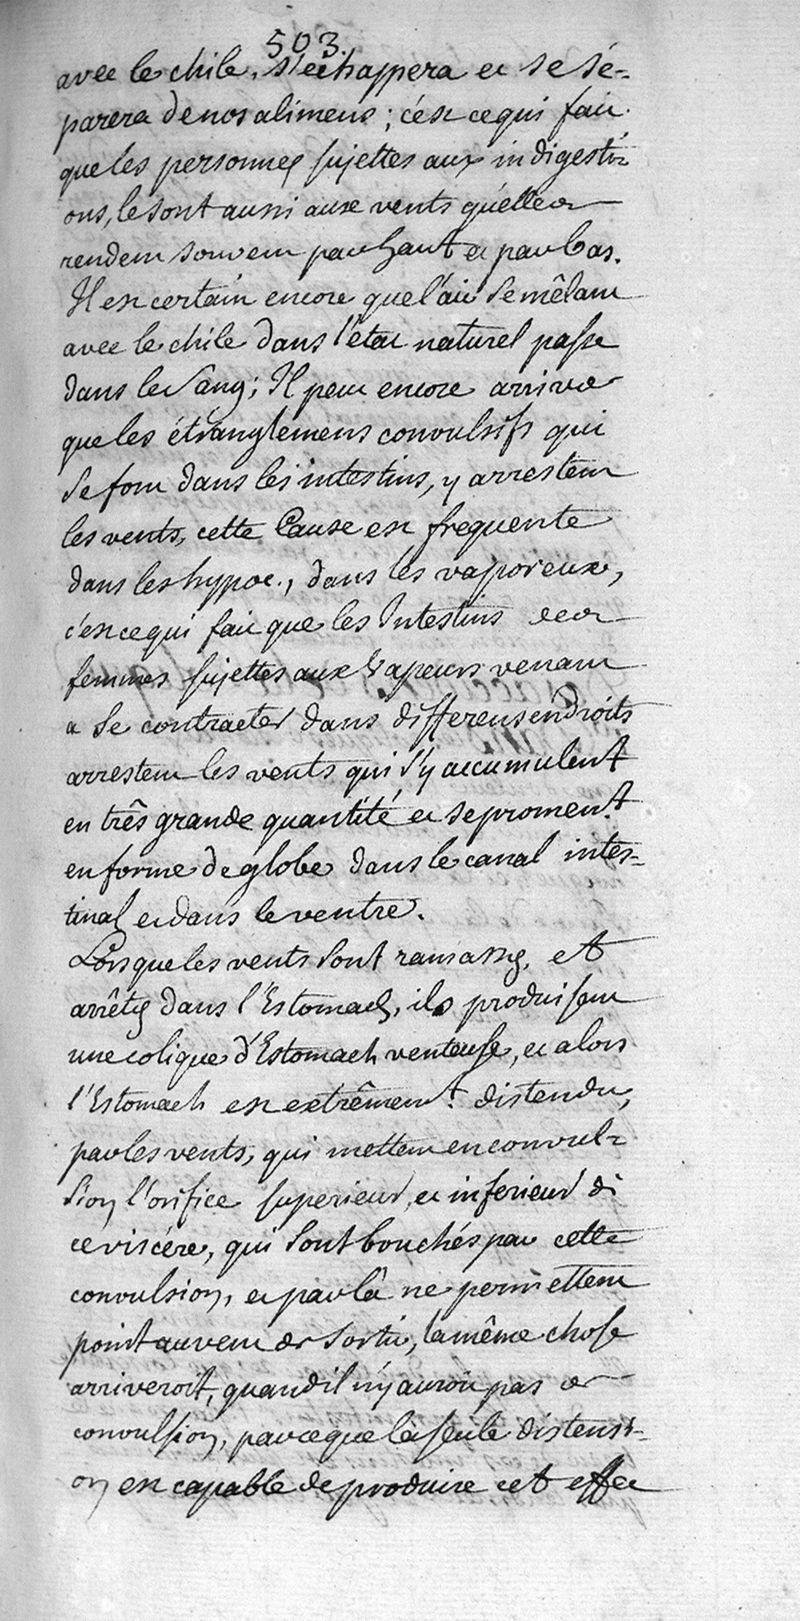 503.
avec le chile, s'echappera et se sé-
parera de nos alimens ; c'est ce qui fait
que les personnes sujettes aux indigesti-
ons, le sont aussi aux vents qu'elles
rendent souvent par haut et par bas.
Il est certain encore que l'air se mêlant
avec le chile dans l'état naturel passe
dans le sang ; Il peut encore arriver
que les étranglemens convulsifs qui
se font dans les intestins, y arrestent
les vents, cette Cause est frequente
dans les hypoc., dans les vaporeux,
c'est ce qui fait que les Intestins des
femmes sujettes aux Vapeurs venant
a se contracter dans differens endroits
arrestent les vents qui s'y accumulent
en três grande quantité et se proment.
en forme de globe dans le canal intes-
tinal et dans le ventre.
Lorsque les vents sont ramassés, et
arrêtés dans l'Estomach, ils produisent
une colique d'Estomach venteuse, et alors
l'Estomach est extrêment. distendu,
par les vents, qui mettent en convul-
sion l'orifice superieur, et inferieur de
ce viscére, qui sont bouchés par cette
convulsion, et par là ne permettent
point au vent de sortir, la même chose
arriveroit, quand il n'y auroit pas de
convulsion, parce que la seule distensi-
on est capable de produire cet effet